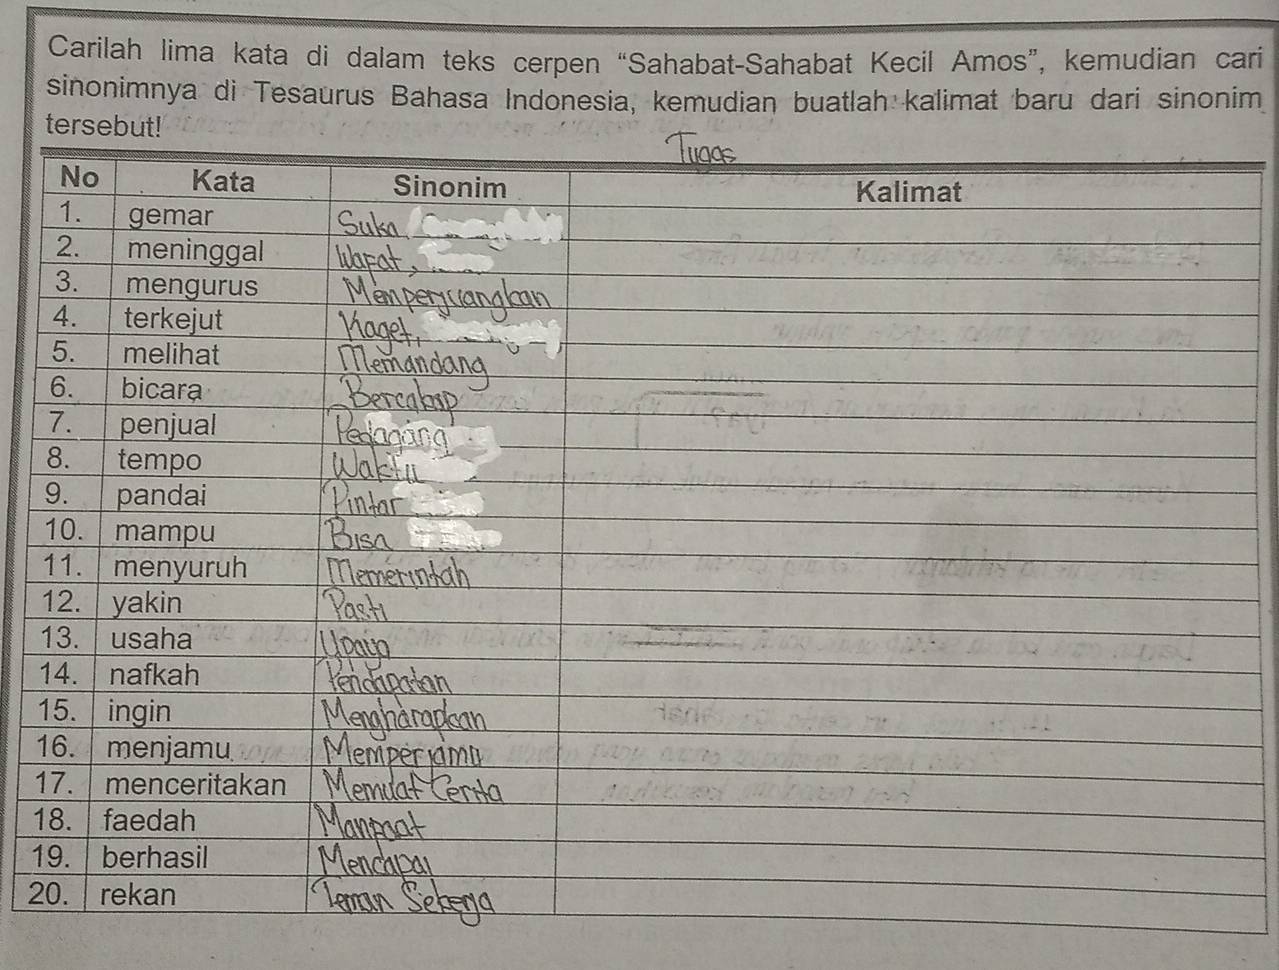 Carilah lima kata di dalam teks cerpen “Sahabat-Sahabat Kecil Amos”, kemudian cari
sinonimnya di Tesaurus Bahasa Indonesia, kemudian buatlah kalimat baru dari sinonim
tersebut!
Tugas
No Kata Sinonim Kalimat
1. gemar Suka,
2. meninggal Wafat,
3. mengurus Memperjuangkan
4. terkejut Kaget,
5. melihat Memandang
6. bicara Bercakap
7. penjual Pedagang
8. tempo Waktu
9. pandai Pintar
10. mampu Bisa
11. menyuruh Memerintah
12. yakin Pasti
13. usaha Upaya
14. nafkah Pendapatan
15. ingin Mengharapkan
16. menjamu Memperjamu
17. menceritakan Memuat Cerita
18. faedah Manfaat
19. berhasil Mencapai
20. rekan Teman Sekerja